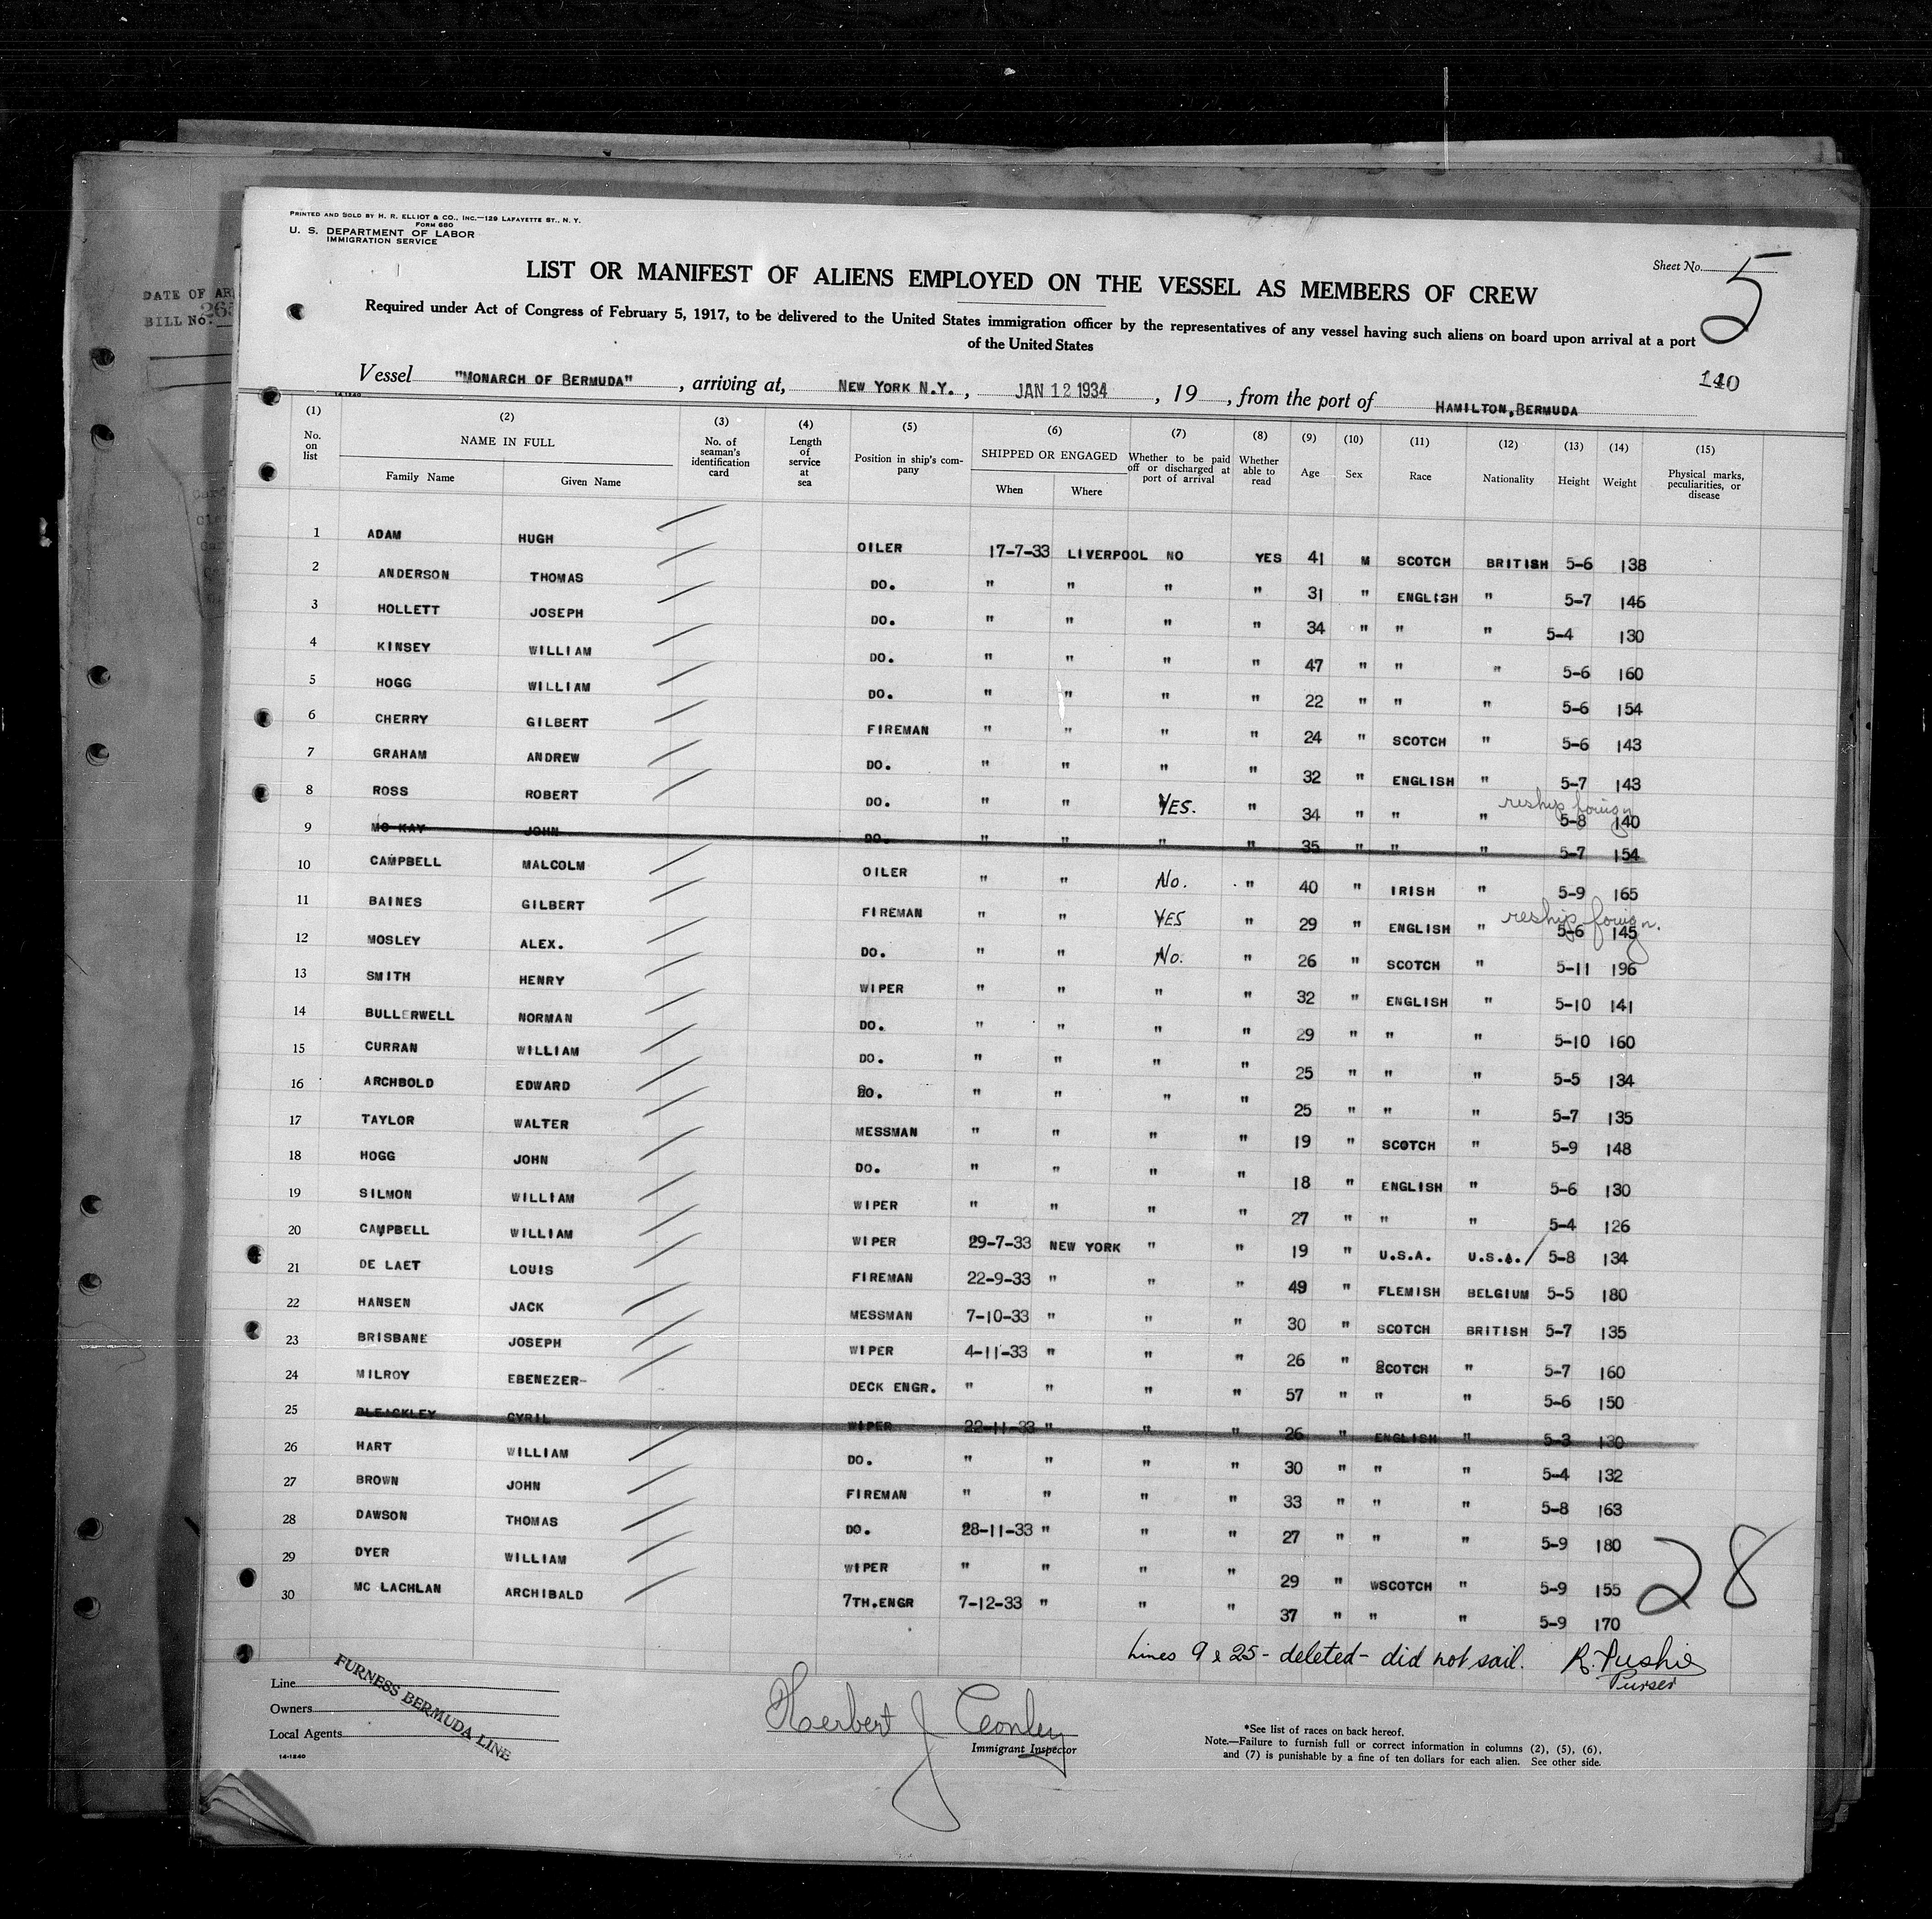 PRINTED AND SOLD BY H. R. ELLIOT & CO., INC.—129 LAFAYETTE ST., N. Y.
FORM 680
U. S. DEPARTMENT OF LABOR
IMMIGRATION SERVICE
Sheet No. 5
LIST OR MANIFEST OF ALIENS EMPLOYED ON THE VESSEL AS MEMBERS OF CREW
Required under Act of Congress of February 5, 1917, to be delivered to the United States immigration officer by the representatives of any vessel having such aliens on board upon arrival at a port
of the United States
DATE OF AR
BILL No. 265
140
Vessel "MONARCH OF BERMUDA", arriving at, NEW YORK N.Y., JAN 12 1934, 19, from the port of HAMILTON, BERMUDA
14-1240
(1) (2) (3) (4) (5) (6) (7) (8) (9) (10) (11) (12) (13) (14) (15)
No. on list NAME IN FULL Family Name Given Name No. of seaman's identification card Length of service at sea Position in ship's company SHIPPED OR ENGAGED When Where Whether to be paid off or discharged at port of arrival Whether able to read Age Sex Race Nationality Height Weight Physical marks, peculiarities, or disease
1 ADAM HUGH OILER 17-7-33 LIVERPOOL NO YES 41 M SCOTCH BRITISH 5-6 138
2 ANDERSON THOMAS DO. " " " " 31 " ENGLISH " 5-7 146
3 HOLLETT JOSEPH DO. " " " " 34 " " " 5-4 130
4 KINSEY WILLIAM DO. " " " " 47 " " " 5-6 160
5 HOGG WILLIAM DO. " " " " 22 " " " 5-6 154
6 CHERRY GILBERT FIREMAN " " " " 24 " SCOTCH " 5-6 143
7 GRAHAM ANDREW DO. " " " " 32 " ENGLISH " 5-7 143
8 ROSS ROBERT DO. " " YES. " 34 " " " 5-8 140 reship foreign
9 MC KAY JOHN DO. " " " " 35 " " " 5-7 154
10 CAMPBELL MALCOLM OILER " " No. " 40 " IRISH " 5-9 165
11 BAINES GILBERT FIREMAN " " YES " 29 " ENGLISH " 5-6 145 reship foreign.
12 MOSLEY ALEX. DO. " " No. " 26 " SCOTCH " 5-11 196
13 SMITH HENRY WIPER " " " " 32 " ENGLISH " 5-10 141
14 BULLERWELL NORMAN DO. " " " " 29 " " " 5-10 160
15 CURRAN WILLIAM DO. " " " " 25 " " " 5-5 134
16 ARCHBOLD EDWARD DO. " " " " 25 " " " 5-7 135
17 TAYLOR WALTER MESSMAN " " " " 19 " SCOTCH " 5-9 148
18 HOGG JOHN DO. " " " " 18 " ENGLISH " 5-6 130
19 SILMON WILLIAM WIPER " " " " 27 " " " 5-4 126
20 CAMPBELL WILLIAM WIPER 29-7-33 NEW YORK " " 19 " U.S.A. U.S.A. 5-8 134
21 DE LAET LOUIS FIREMAN 22-9-33 " " " 49 " FLEMISH BELGIUM 5-5 180
22 HANSEN JACK MESSMAN 7-10-33 " " " 30 " SCOTCH BRITISH 5-7 135
23 BRISBANE JOSEPH WIPER 4-11-33 " " " 26 " SCOTCH " 5-7 160
24 MILROY EBENEZER- DECK ENGR. " " " " 57 " " " 5-6 150
25 BLEACKLEY CYRIL WIPER 22-11-33 " " " 26 " ENGLISH " 5-3 130
26 HART WILLIAM DO. " " " " 30 " " " 5-4 132
27 BROWN JOHN FIREMAN " " " " 33 " " " 5-8 163
28 DAWSON THOMAS DO. 28-11-33 " " " 27 " " " 5-9 180
29 DYER WILLIAM WIPER " " " " 29 " WSCOTCH " 5-9 155
30 MC LACHLAN ARCHIBALD 7TH.ENGR 7-12-33 " " " 37 " " " 5-9 170
28
Lines 9 & 25 - deleted - did not sail. R. Pushie
Purser
Line
Owners
Local Agents
FURNESS BERMUDA LINE
14-1240
Herbert J Conley
Immigrant Inspector
*See list of races on back hereof.
Note.—Failure to furnish full or correct information in columns (2), (5), (6),
and (7) is punishable by a fine of ten dollars for each alien. See other side.